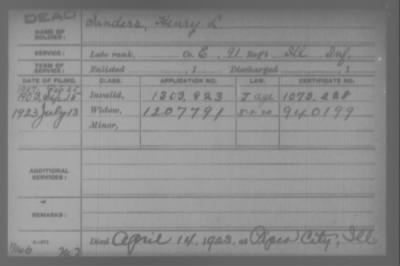 DEAD
NAME OF SOLDIER: Sanders, Henry L
SERVICE: Late rank, Co. E, 91 Reg't Ill Inf.
TERM OF SERVICE: Enlisted , 1 Discharged , 1
DATE OF FILING. CLASS. APPLICATION NO. LAW. CERTIFICATE NO.
1903, Invalid, 1303.823 J age 1073.228
1923 July 13 Widow, 1207791 940199
Minor,
ADDITIONAL SERVICES:
REMARKS:
Died April 14, 1923, at City, Ill